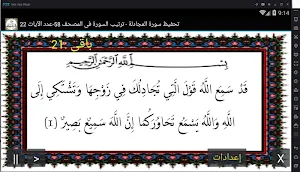 9:14
تحفيظ سورة المجادلة - ترتيب السورة في المصحف 58-عدد الآيات 22
باقي -21
بِسْمِ اللَّهِ الرَّحْمَنِ الرَّحِيمِ
قَدْ سَمِعَ اللَّهُ قَوْلَ الَّتِي تُجَادِلُكَ فِي زَوْجِهَا وَتَشْتَكِي إِلَى
اللَّهِ وَاللَّهُ يَسْمَعُ تَحَاوُرَكُمَا إِنَّ اللَّهَ سَمِيعٌ بَصِيرٌ (١)
|| > إعدادات X